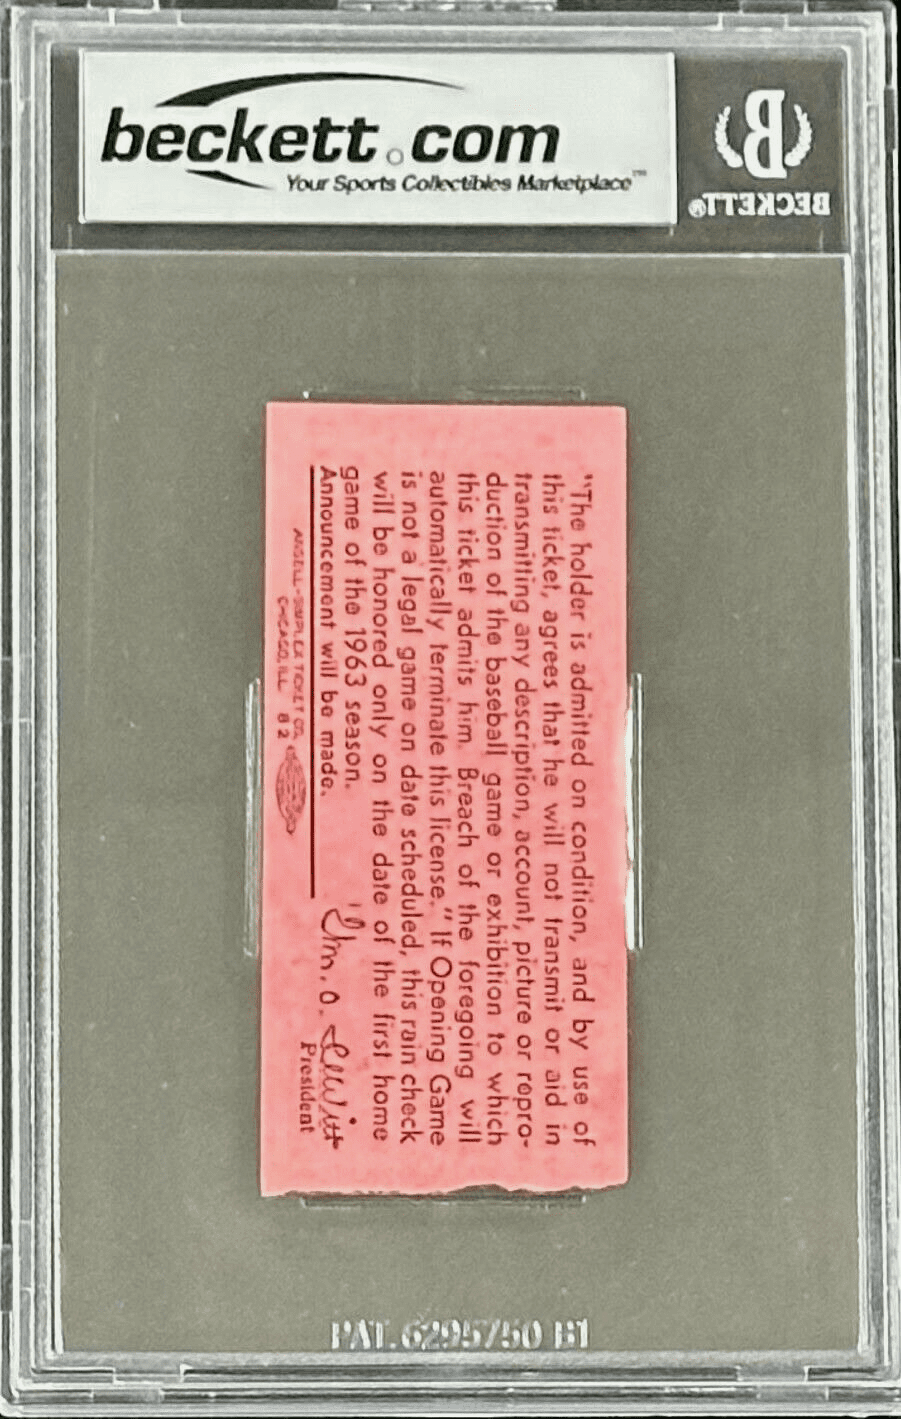 beckett.com
Your Sports Collectibles Marketplace™
B
BECKETT®
"The holder is admitted on condition, and by use of
this ticket, agrees that he will not transmit or aid in
transmitting any description, account, picture or repro-
duction of the baseball game or exhibition to which
this ticket admits him. Breach of the foregoing will
automatically terminate this license." If Opening Game
is not a legal game on date scheduled, this rain check
will be honored only on the date of the first home
game of the 1963 season.
Announcement will be made.
Wm. O. DeWitt
President
ANSELL-SIMPLEX TICKET CO.
CHICAGO, ILL. 82
PAT. 6295750 B1